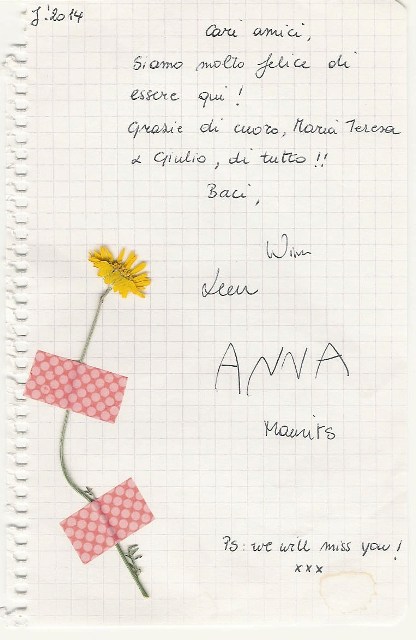 J! 2014
Cari amici,
Siamo molto felice di
essere qui!
Grazie di cuoro, Maria Teresa
& Giulio, di tutto!!
Baci,
Wim
Leen
ANNA
Maurits
Ps: we will miss you!
xxx